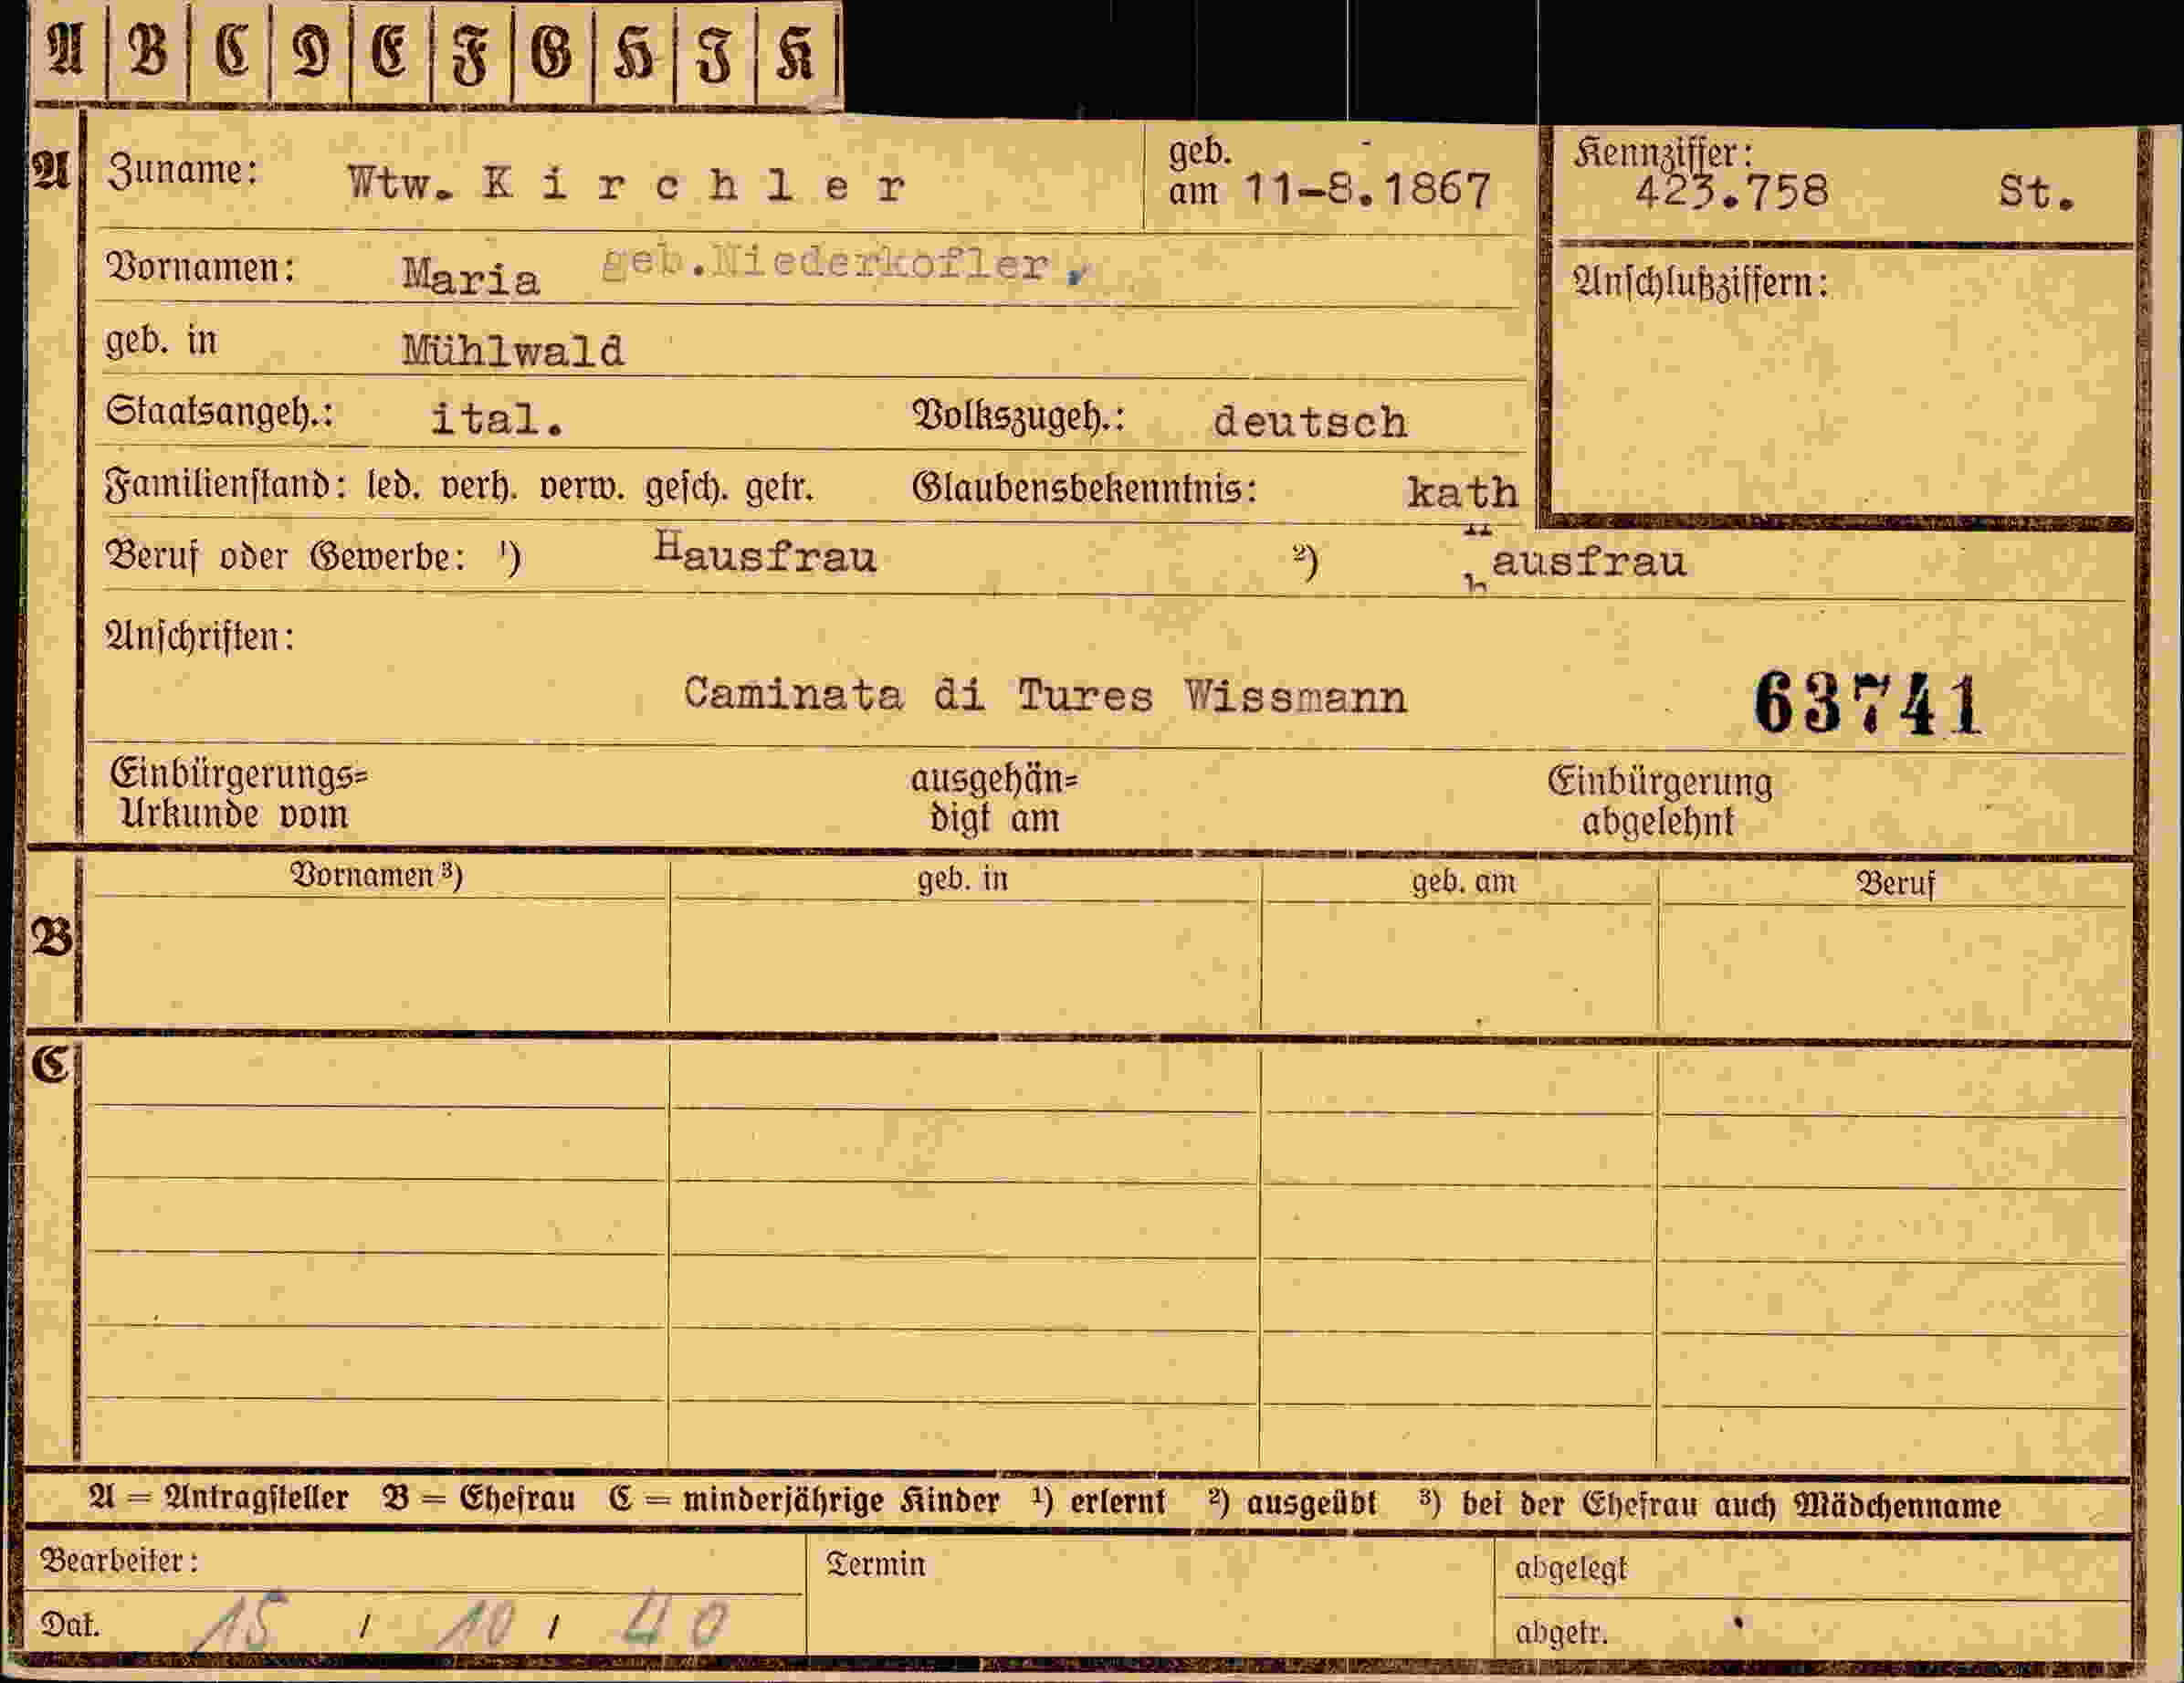 A B C D E F G H I K
A Zuname: Wtw. K i r c h l e r geb. am 11-8.1867 Kennziffer: 423.758 St.
Vornamen: Maria geb.Niederkofler. Anschlußziffern:
geb. in Mühlwald
Staatsangeh.: ital. Volkszugeh.: deutsch
Familienstand: led. verh. verw. gesch. getr. Glaubensbekenntnis: kath
Beruf oder Gewerbe: ¹) Hausfrau ²) hausfrau
Anschriften:
Caminata di Tures Wissmann 63741
Einbürgerungs= ausgehän= Einbürgerung
Urkunde vom digt am abgelehnt
Vornamen ³) geb. in geb. am Beruf
B
C
A = Antragsteller B = Ehefrau C = minderjährige Kinder ¹) erlernt ²) ausgeübt ³) bei der Ehefrau auch Mädchenname
Bearbeiter: Termin abgelegt
Dat. 15 / 10 / 40 abgetr.